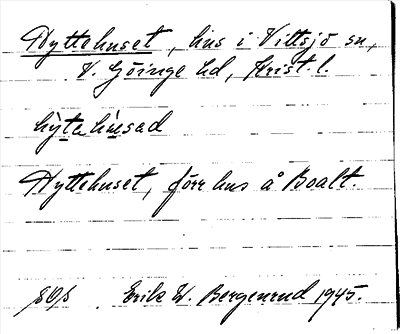 Hyttehuset, hus i Vittsjö sn,
V. Göinge hd, Krist. l.
hỳtehùsad
Hyttehuset, förr hus å Boalt.
Erik W. Bergenrud 1945.